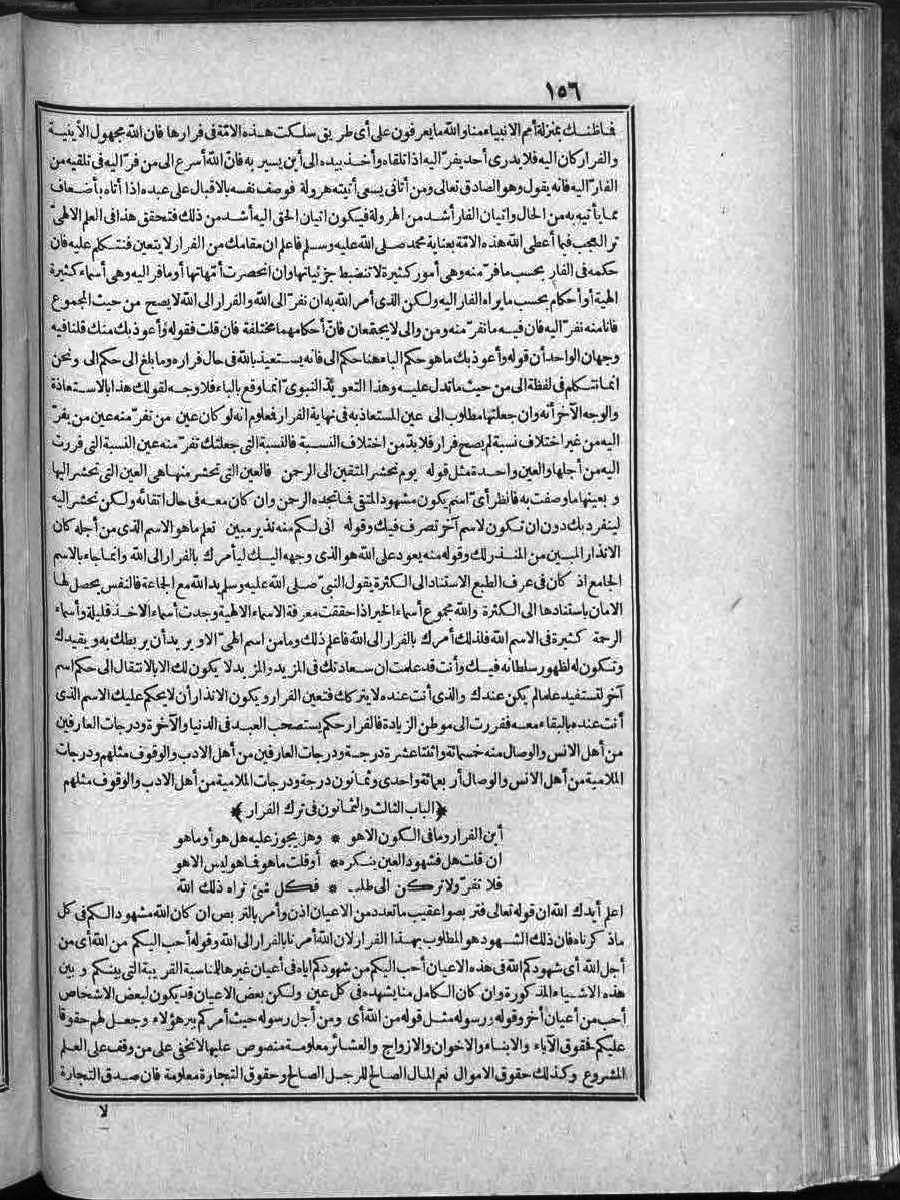 ١٥٦
فاظنك بمنزلة أمم الانبياء منا والله ما يعرفون على أى طريق سلكت هذه الامّة فى فرارها فان الله مجهول الأينية
والفرار كان اليه فلا يدرى أحد يفرّ اليه اذا تلقاه وأخذ بيده الى أين يسير به فانّ الله أسرع الى من فرّ اليه فى تلقيه من
الفارّ اليه فانه يقول وهو الصادق تعالى ومن أتانى يسعى أتيته هرولة فوصف نفسه بالاقبال على عبده اذا أتاه بأضعاف
مما يأتيه به من الحال واتيان الفار أشد من الهرولة فيكون اتيان الحق اليه أشد من ذلك فتحقق هذا فى العلم الالهىّ
تر العجب فيما أعطى الله هذه الامّة بعناية محمد صلى الله عليه وسلم فاعلم ان مقامك من الفرار لا يتعين فنتكلم عليه فان
حكمه فى الفار بحسب ما فرّ منه وهى أمور كثيرة لا تنضبط جزئياتها وان انحصرت أمّهاتها أو ما فر اليه وهى أسماء كثيرة
الهية أو أحكام بحسب ما يراه الفار اليه ولكن الذى أمر الله به ان نفرّ الى الله والفرار الى الله لا يصح من حيث المجموع
فانا منه نفرّ اليه فان فيه ما نفرّ منه ومن والى لا يجتمعان فانّ أحكامهما مختلفة فان قلت فقوله وأعوذ بك منك قلنا فيه
وجهان الواحد أن قوله وأعوذ بك ما هو حكم الباء هنا حكم الى فانه يستعيذ بالله فى حال فراره وما بلغ الى حكم الى ونحن
انما نتكلم فى لفظة الى من حيث ما تدل عليه وهذا التعويذ النبوىّ انما وقع بالباء فلا وجه لقولك هذا بالاستعاذة
والوجه الآخر أنه وان جعلتها مطلوب الى عين المستعاذ به فى نهاية الفرار فعلوم انه لو كان عين من نفرّ منه عين من يفرّ
اليه من غير اختلاف نسبة لم يصح فرار فلا بدّ من اختلاف النسبة فالنسبة التى جعلتك تفرّ منه عين النسبة التى فررت
اليه من أجلها والعين واحدة مثل قوله يوم نحشر المتقين الى الرحمن فالعين التى نحشر منها هى العين التى نحشر اليها
و بعينها ما وصفت به فانظر أىّ اسم يكون مشهود المتقى فاتجده الرحمن وان كان معه فى حال اتقائه ولكن نحشر اليه
لينفرد بك دون ان تكون لاسم آخر تصرف فيك وقوله انى لكم منه نذير مبين تعلم ما هو الاسم الذى من أجله كان
الانذار المبين من المنذر لك وقوله منه يعود على الله هو الذى وجهه اليك ليأمرك بالفرار الى الله وانما جاء بالاسم
الجامع اذ كان فى عرف الطبع الاستناد الى الكثرة يقول النبىّ صلى الله عليه وسلم يد الله مع الجماعة فالنفس يحصل لها
الامان باستنادها الى الكثرة والله مجموع أسماء الخير اذا حققت معرفة الاسماء الالهية وجدت أسماء الاخذ قليلة وأسماء
الرحمة كثيرة فى الاسم الله فلذلك أمرك بالفرار الى الله فاعلم ذلك وما من اسم الهىّ الا ويريد أن يربطك به ويقيدك
وتكون له لظهور سلطانه فيك وأنت قد علمت ان سعادتك فى المزيد والمزيد لا يكون لك الا بالانتقال الى حكم اسم
آخر لتستفيد علما لم يكن عندك والذى أنت عنده لا يتركك فتعين الفرار ويكون الانذار أن لا يحكم عليك الاسم الذى
أنت عنده بالبقاء معه ففررت الى موطن الزيادة فالفرار حكم يستصحب العبد فى الدنيا والآخرة ودرجات العارفين
من أهل الانس والوصال منه خمسمائة واثنتا عشرة درجة ودرجات العارفين من أهل الادب والوقوف مثلهم ودرجات
الملامية من أهل الانس والوصال أربعمائة واحدى وثمانون درجة ودرجات الملامية من أهل الادب والوقوف مثلهم
﴿الباب الثالث والثمانون فى ترك الفرار﴾
أين الفرار وما فى الكون الا هو * وهل يجوز عليه هل هو أو ما هو
ان قلت هل فشهود العين ينكره * أو قلت ما هو فما هو ليس الا هو
فلا تفرّ ولا تركن الى طلب * فكل شئ تراه ذلك الله
اعلم أيدك الله ان قوله تعالى فتربصوا عقيب ما تعدد من الاعيان اذن وأمر بالتربص ان كان الله مشهود الكم فى كل
ما ذكرناه فان ذلك الشهود هو المطلوب بهذا الفرار لان الله أمرنا بالفرار الى الله وقوله أحب اليكم من الله أى من
أجل الله أى شهودكم الله فى هذه الاعيان أحب اليكم من شهودكم اياه فى أعيان غيرها للمناسبة القريبة التى بينكم وبين
هذه الاشياء المذكورة وان كان الكامل منا يشهده فى كل عين ولكن بعض الاعيان قد يكون لبعض الاشخاص
أحب من أعيان أخر وقوله ورسوله مثل قوله من الله أى ومن أجل رسوله حيث أمركم ببر هؤلاء وجعل لهم حقوقا
عليكم لحقوق الآباء والابناء والاخوان والازواج والعشائر معلومة منصوص عليها لا تخفى على من وقف على العلم
المشروع وكذلك حقوق الاموال نعم المال الصالح للرجل الصالح وحقوق التجارة معلومة فان صدق التجارة
لا